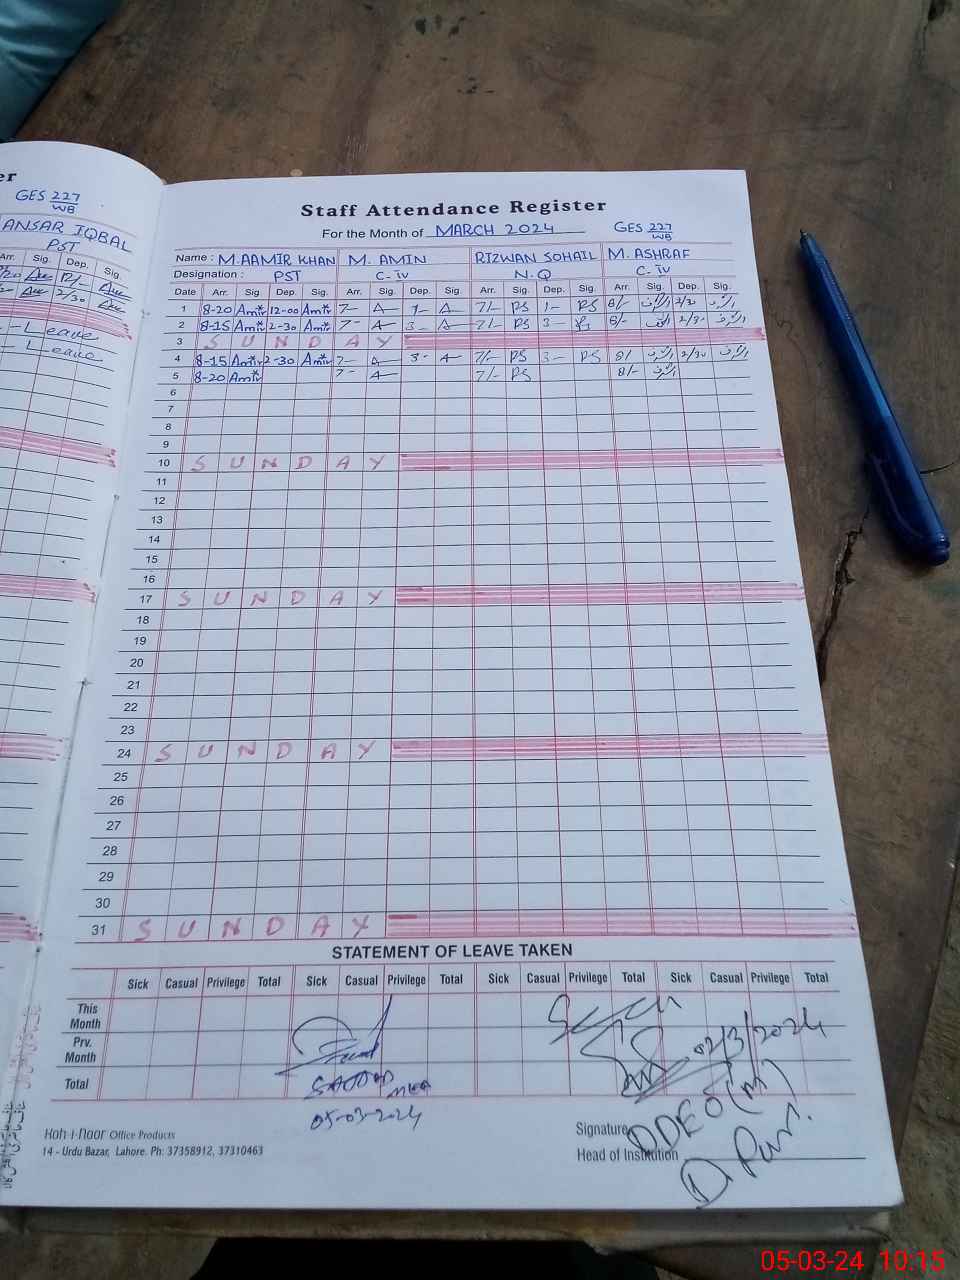 er
GES 227/WB
ANSAR IQBAL
PST
Arr. Sig. Dep. Sig.
Leave
Leave
Staff Attendance Register
For the Month of MARCH 2024 GES 227/WB
Name : M.AAMIR KHAN M. AMIN RIZWAN SOHAIL M. ASHRAF
Designation : PST C-IV N.Q C-IV
Date Arr. Sig. Dep. Sig. Arr. Sig. Dep. Sig. Arr. Sig. Dep. Sig. Arr. Sig. Dep. Sig.
1 8-20 Amir 12-00 Amir 7- A 1- A 7/- RS 1- RS 8/- اشرف 2/30 اشرف
2 8-15 Amir 2-30 Amir 7- A 3- A 7/- RS 3- 8/- اشرف 2/30 اشرف
3 SUNDAY
4 8-15 Amir 2-30 Amir 7- A 3- A 7/- RS 3- RS 8/ اشرف 2/30 اشرف
5 8-20 Amir 7- A 7/- RS 8/- اشرف
6
7
8
9
10 SUNDAY
11
12
13
14
15
16
17 SUNDAY
18
19
20
21
22
23
24 SUNDAY
25
26
27
28
29
30
31 SUNDAY
STATEMENT OF LEAVE TAKEN
Sick Casual Privilege Total Sick Casual Privilege Total Sick Casual Privilege Total Sick Casual Privilege Total
This Month
Prv. Month
Total
MEA
05-03-2024
02/3/2024
DDEO (M)
Koh-i-noor Office Products
14 - Urdu Bazar, Lahore. Ph: 37358912, 37310463
Signature
Head of Institution
05-03-24 10:15